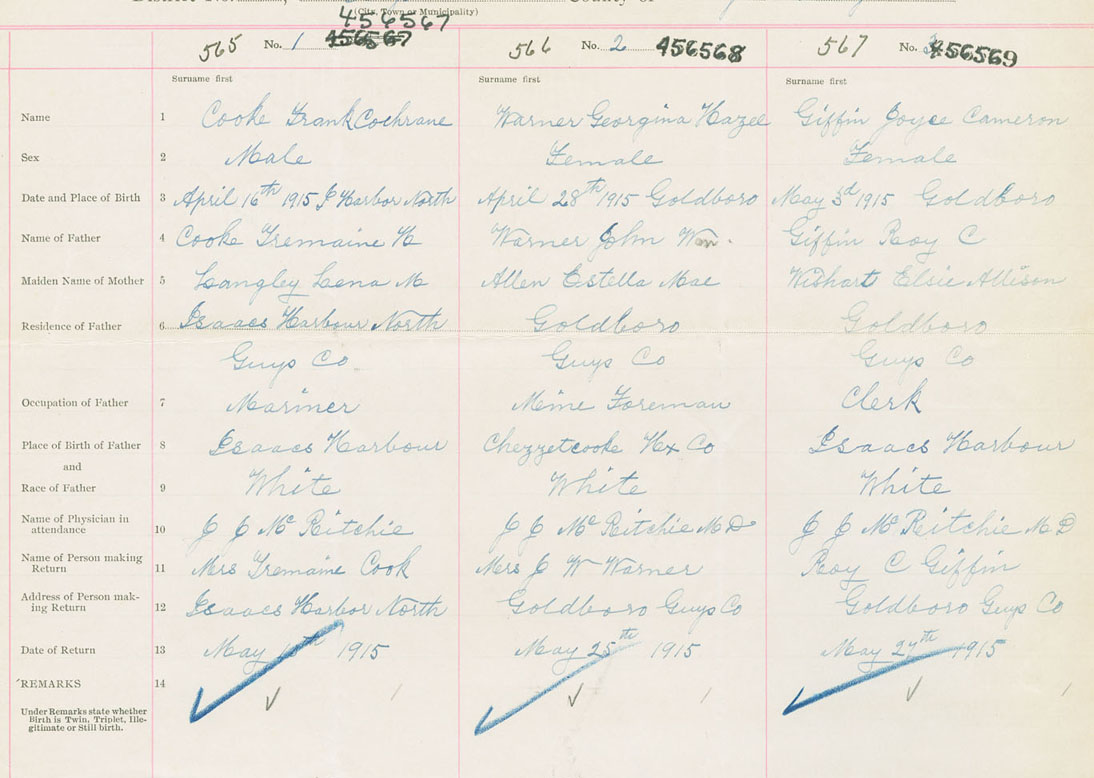 District No. County of
(City, Town or Municipality)
456567
565 No. 1 456567 566 No. 2 456568 567 No. 456569
Surname first Surname first Surname first
Name 1 Cooke Frank Cochrane Warner Georgina Hazel Giffin Joyce Cameron
Sex 2 Male Female Female
Date and Place of Birth 3 April 16th 1915 I Harbor North April 28th 1915 Goldboro May 3d 1915 Goldboro
Name of Father 4 Cooke Tremaine H Warner John Wm. Giffin Roy C
Maiden Name of Mother 5 Langley Lena M Allen Estella Mae Wishart Elsie Allison
Residence of Father 6 Isaacs Harbour North Goldboro Goldboro
Guys Co Guys Co Guys Co
Occupation of Father 7 Mariner Mine Foreman Clerk
Place of Birth of Father 8 Isaacs Harbour Chezzetcooke Hx Co Isaacs Harbour
and
Race of Father 9 White White White
Name of Physician in
attendance 10 J J Mc Ritchie J J Mc Ritchie M D J J Mc Ritchie M D
Name of Person making
Return 11 Mrs Tremaine Cook Mrs J W Warner Roy C Giffin
Address of Person mak-
ing Return 12 Isaacs Harbor North Goldboro Guys Co Goldboro Guys Co
Date of Return 13 May 1915 May 25th 1915 May 27th 1915
REMARKS 14
Under Remarks state whether
Birth is Twin, Triplet, Ille-
gitimate or Still birth.